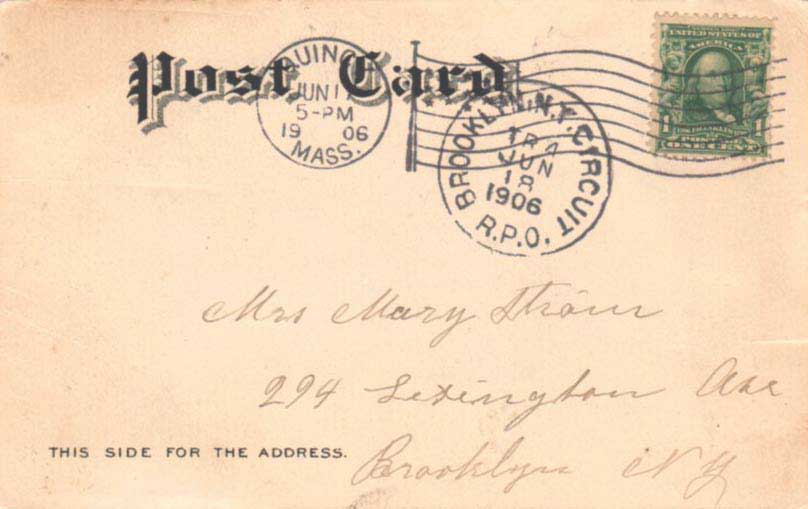 Post Card
QUINCY
JUN 1
5-PM
19 06
MASS.
BROOKLYN, N.Y. CIRCUIT
JUN
18
1906
R.P.O.
UNITED STATES OF
AMERICA
1 1
ONE CENT
Mrs Mary Ström
294 Lexington Ave
THIS SIDE FOR THE ADDRESS.
Brooklyn NY